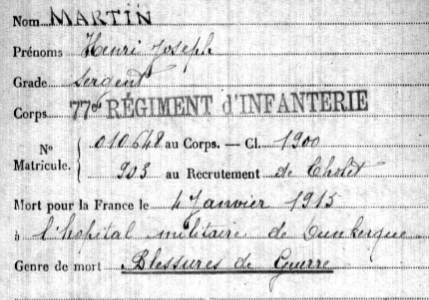 Nom MARTIN
Prénoms Henri Joseph
Grade Sergent
Corps 77e RÉGIMENT d'INFANTERIE
N° Matricule. { 010648 au Corps. — Cl. 1900
903 au Recrutement de Cholet
Mort pour la France le 4 Janvier 1915
à l'hopital militaire de Dunkerque
Genre de mort Blessures de Guerre